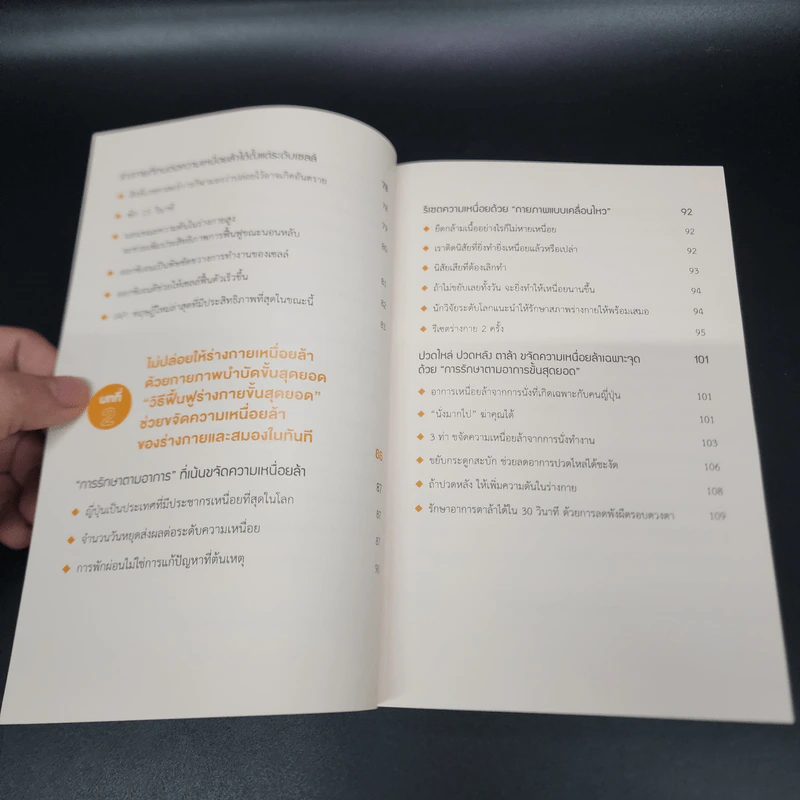 78
78
79
80
ออกซิเจนเป็นพิษขัดขวางการทำงานของเซลล์
81
82
ทฤษฎีใหม่ล่าสุดที่มีประสิทธิภาพที่สุดในขณะนี้
83
บทที่ 2
ไม่ปล่อยให้ร่างกายเหนื่อยล้า
ด้วยกายภาพบำบัดขั้นสุดยอด
“วิธีฟื้นฟูร่างกายขั้นสุดยอด”
ช่วยขจัดความเหนื่อยล้า
ของร่างกายและสมองในทันที
86
“การรักษาตามอาการ” ที่เน้นขจัดความเหนื่อยล้า
87
ญี่ปุ่นเป็นประเทศที่มีประชากรเหนื่อยที่สุดในโลก
87
จำนวนวันหยุดส่งผลต่อระดับความเหนื่อย
87
การพักผ่อนไม่ใช่การแก้ปัญหาที่ต้นเหตุ
90
รีเซตความเหนื่อยด้วย “กายภาพแบบเคลื่อนไหว” 92
ยืดกล้ามเนื้ออย่างไรก็ไม่หายเหนื่อย 92
เราติดนิสัยที่ยิ่งทำยิ่งเหนื่อยแล้วหรือเปล่า 92
นิสัยเสียที่ต้องเลิกทำ 93
ถ้าไม่ขยับเลยทั้งวัน จะยิ่งทำให้เหนื่อยนานขึ้น 94
นักวิจัยระดับโลกแนะนำให้รักษาสภาพร่างกายให้พร้อมเสมอ 94
รีเซตร่างกาย 2 ครั้ง 95
ปวดไหล่ ปวดหลัง ตาล้า ขจัดความเหนื่อยล้าเฉพาะจุด 101
ด้วย “การรักษาตามอาการขั้นสุดยอด”
อาการเหนื่อยล้าจากการนั่งที่เกิดเฉพาะกับคนญี่ปุ่น 101
“นั่งมากไป” ฆ่าคุณได้ 101
3 ท่า ขจัดความเหนื่อยล้าจากการนั่งทำงาน 103
ขยับกระดูกสะบัก ช่วยลดอาการปวดไหล่ได้ชะงัด 106
ถ้าปวดหลัง ให้เพิ่มความดันในร่างกาย 108
รักษาอาการตาล้าได้ใน 30 วินาที ด้วยการลดพังผืดรอบดวงตา 109